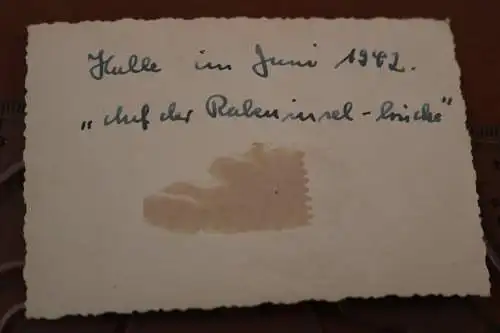 Halle im Juni 1942.
„Auf der Rabeninsel-brücke"